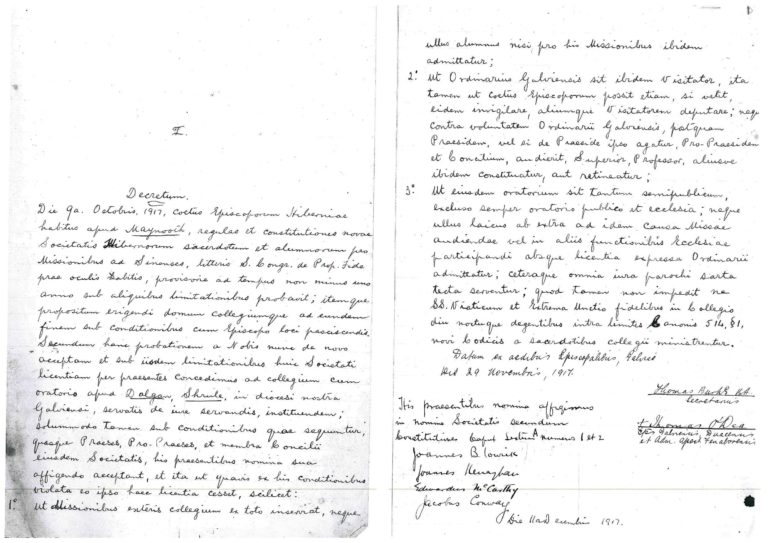 I.
Decretum.
Die 9a. Octobris, 1917, coetus Episcoporum Hiberniae
habitus apud Maynooth, regulas et constitutiones novae
Societatis Hibernorum sacerdotum et alumnorum pro
Missionibus ad Sinenses, litteris S. Congr. de Prop. Fide
prae oculis habitis, provisorie ad tempus non minus uno
anno sub aliquibus limitationibus probavit; itemque
propositum erigendi domum collegiumque ad eundem
finem sub conditionibus cum Episcopo loci paciscendis.
Secundum hanc probationem a Nobis nunc de novo
acceptam et sub iisdem limitationibus huic Societati
licentiam per praesentes concedimus ad collegium cum
oratorio apud Dalgan, Shrule, in dioesi nostra
Galviensi, servatis de iure servandis, instituendum;
solummodo tamen sub conditionibus quae sequuntur;
quasque Praeses, Pro-Praeses, et membra Concilii
eiusdem Societatis, his praesentibus nomina sua
affigendo acceptant, et ita ut quavis ex his conditionibus
violata eo ipso haec licentia cesset, scilicet:
1º Ut Missionibus exteris collegium ex toto inserviat, neque
ullus alumnus nisi pro his Missionibus ibidem
admittatur;
2º Ut Ordinarius Galviensis sit ibidem Visitator, ita
tamen ut coetus Episcoporum possit etiam, si velit,
eidem invigilare, aliumque Visitatorem deputare; neque
contra voluntatem Ordinarii Galviensis, postquam
Praesidem, vel si de Praeside ipso agatur, Pro-Praesidem
et Concilium, audierit, Superior, Professor, aliusve
ibidem constituatur, aut retineatur;
3º Ut eiusdem oratorium sit tantum semipublicum,
excluso semper oratorio publico et ecclesia; neque
ullus laicus ab extra ad idem causa Missae
audiendae vel in aliis functionibus Ecclesiae
participandi absque licentia expressa Ordinarii
admittatur; ceteraque omnia iura parochi sarta
tecta serventur; quod tamen non impedit ne
SS. Viaticum et Extrema Unctio fidelibus in Collegio
diu noctuque degentibus intra limites Canonis 514, §1,
novi Codicis a sacerdotibus collegii ministrentur.
Datum ex aedibus Episcopalibus, Galviae
die 29 Novembris, 1917.
Thomas Burke
Secretarius
+ Thomas O'Dea
Epus Galviensis, Duacensis
et Adm. Apost. Fenaborensis
His praesentibus nomina affigimus
in nomine Societatis secundum
Constitutiones Caput Sextum A numeros 1 et 2
Joannes Blowick
Joannes Heneghan
Edwardus McCarthy
Jacobus Conway
Die 11a Decembris 1917.